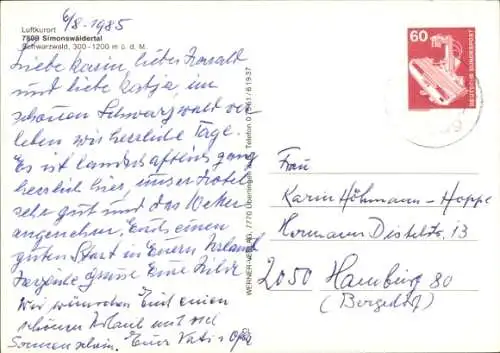 6/8-1985
Luftkurort
7809 Simonswäldertal
Schwarzwald, 300-1200 m ü. d. M.
Liebe Karin, lieber Harald
und liebe Katja, im
schönen Schwarzwald ver
leben wir herrliche Tage.
Es ist landschaftlich ganz
herrlich hier, unser Hotel
sehr gut und das Wetter
angenehm. Euch einen
guten Start in Euern Urlaub
Herzliche Grüsse Eure Hilde
Wir wünschen Euch einen
schönen Urlaub mit viel
Sonnenschein. Euer Vati + Opa
WERNER-VERLAG, 7770 Überlingen Telefon
60
DEUTSCHE BUNDESPOST
Frau
Karin Höhmann-Hoppe
Hermann Distelstr. 13
2050 Hamburg 80
(Bergedorf)